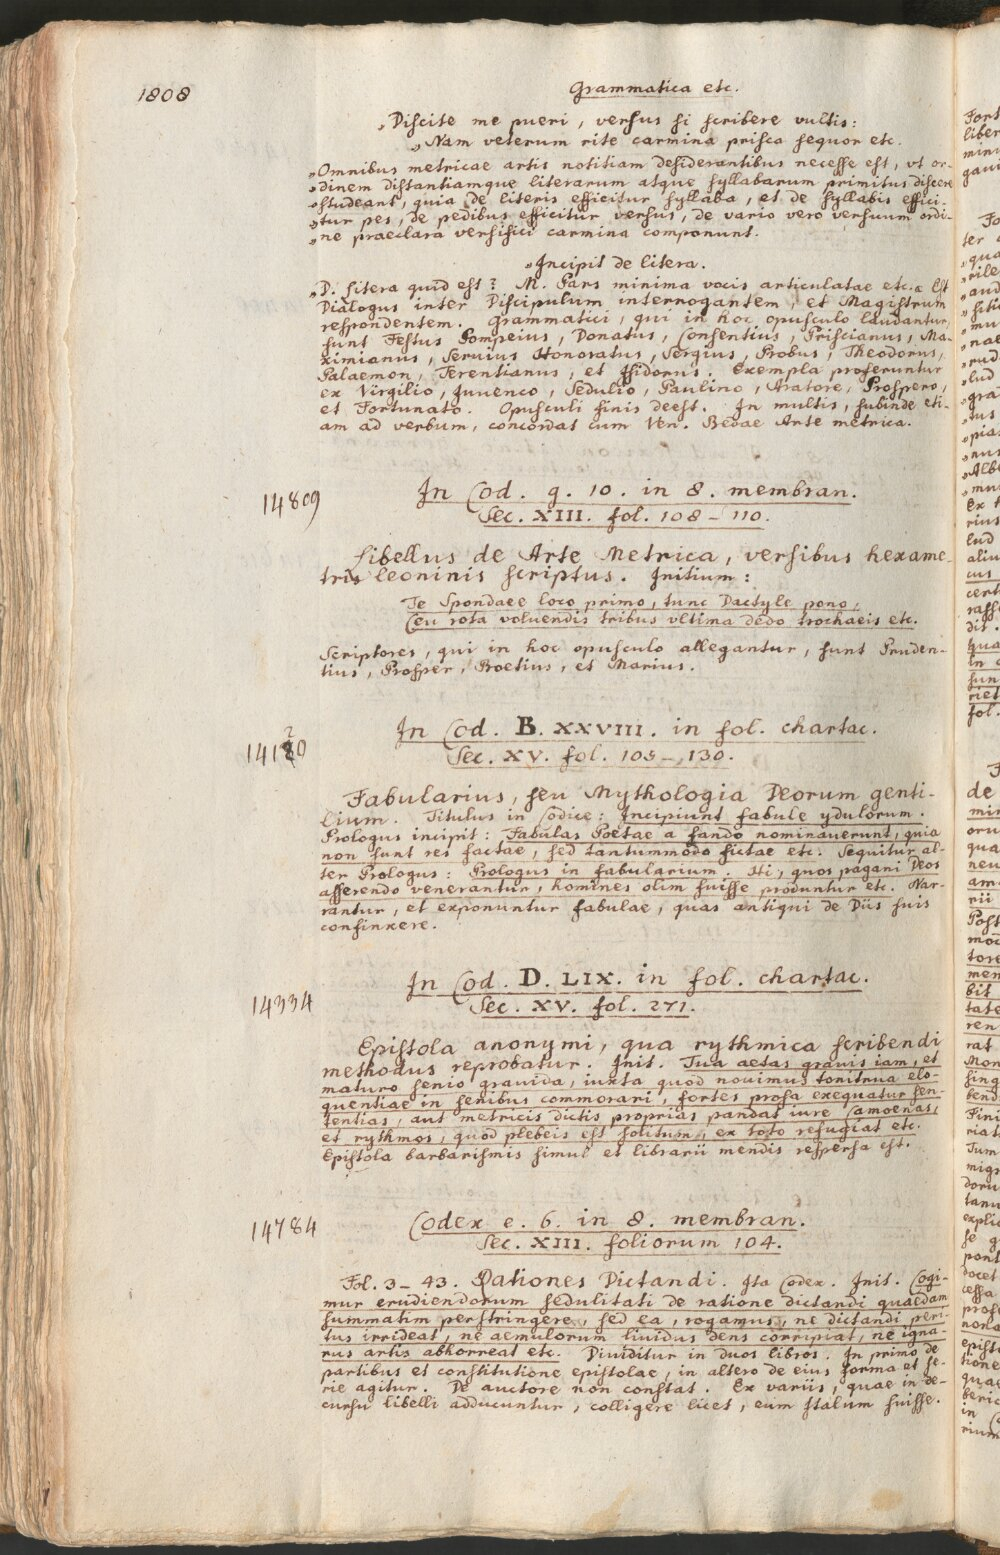 1808
Grammatica etc.
„Discite me pueri, versus si scribere vultis:
„Nam veterum rite carmina prisca sequor etc.
„Omnibus metricae artis notitiam desiderantibus necesse est, ut or-
„dinem distantiamque literarum atque syllabarum primitus discere
„studeant, quia de literis efficitur syllaba, et de syllabis effici-
„tur pes, de pedibus efficitur versus, de vario vero versuum ordi-
„ne praeclara versifici carmina componunt.
„Incipit de litera.
„D. Litera quid est? M. Pars minima vocis articulatae etc.„ Est
Dialogus inter Discipulum interrogantem, et Magistrum
respondentem. Grammatici, qui in hoc opusculo laudantur,
sunt Festus Pompeius, Donatus, Consentius, Priscianus, Ma-
ximianus, Seruius Honoratus, Sergius, Probus, Theodorus,
Palaemon, Terentianus, et Isidorus. Exempla proferuntur
ex Virgilio, Juuenco, Sedulio, Paulino, Aratore, Prospero,
et Fortunato. Opusculi finis deest. In multis, subinde eti-
am ad verbum, concordat cum Ven. Bedae Arte metrica.
14809
In Cod. g. 10. in 8. membran.
Sec. XIII. fol. 108-110.
Libellus de Arte Metrica, versibus hexame-
tris leoninis scriptus. Initium:
Te Spondaee loco primo, tunc Dactyle pono,
Ceu rota voluendis tribus ultima dedo trochaeis etc.
Scriptores, qui in hoc opusculo allegantur, sunt Pruden-
tius, Prosper, Boetius, et Marius.
14120
In Cod. B. XXVIII. in fol. chartac.
Sec. XV. fol. 105-130.
Fabularius, seu Mythologia Deorum genti-
lium. Titulus in Codice: Incipiunt fabule ydulorum.
Prologus incipit: Fabulas Poetae a fando nominauerunt, quia
non sunt res factae, sed tantummodo fictae etc. Sequitur al-
ter Prologus: Prologus in fabularium. Hi, quos pagani Deos
asserendo venerantur, homines olim fuisse produntur etc. Nar-
rantur, et exponuntur fabulae, quas antiqui de Diis suis
confinxere.
14334
In Cod. D. LIX. in fol. chartac.
Sec. XV. fol. 271.
Epistola anonymi, qua rythmica scribendi
methodus reprobatur. Init. Tua aetas grauis iam, et
maturo senio grauida, iuxta quod nouimus tonitrua elo-
quentiae in senibus commorari, fortes prosa exequatur sen-
tentias, aut metricis dictis proprias pandat iure Camoenas,
et rythmos, quod plebeis est solitum, ex toto refugiat etc.
Epistola barbarismis simul et librarii mendis respersa est.
14784
Codex e. 6. in 8. membran.
Sec. XIII. foliorum 104.
Fol. 3-43. Rationes Dictandi. Ita Codex. Init. Cogi-
mur erudiendorum sedulitati de ratione dictandi quaedam
summatim perstringere, sed ea, rogamus, ne dictandi peri-
tus irrideat, ne aemulorum liuidus dens corripiat, ne igna-
rus artis abhorreat etc. Diuiditur in duos libros. In primo de
partibus et constitutione epistolae, in altero de eius forma et se-
rie agitur. De auctore non constat. Ex variis, quae in de-
cursu libelli adducuntur, colligere licet, eum Italum fuisse.